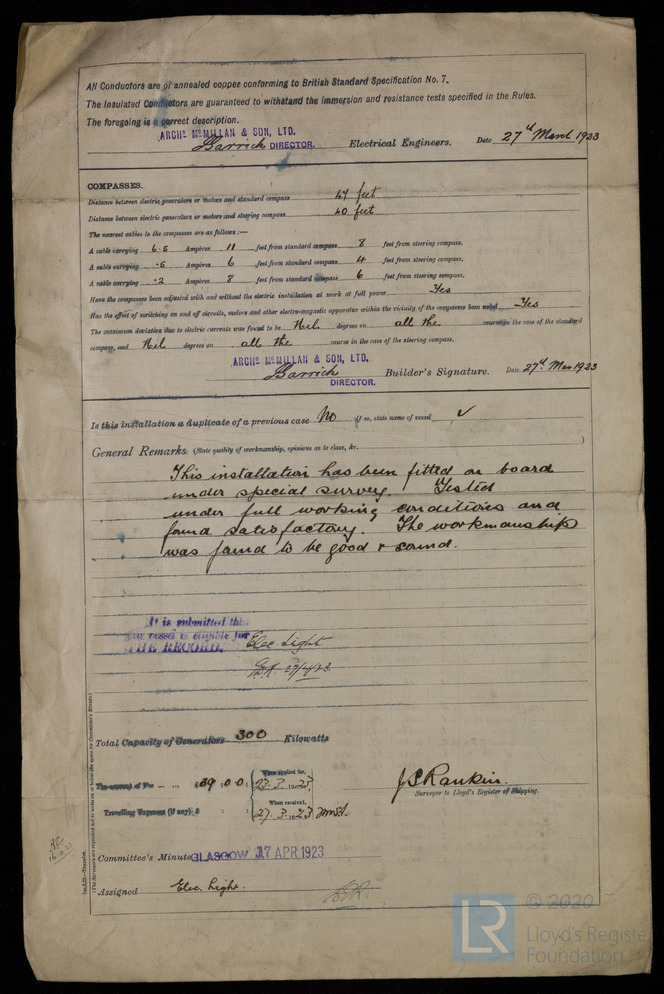 All Conductors are of annealed copper conforming to British Standard Specification No. 7.
The Insulated Conductors are guaranteed to withstand the immersion and resistance tests specified in the Rules.
The foregoing is a correct description.
ARCHD. McMILLAN & SON, LTD.
DIRECTOR. Electrical Engineers. Date 27th March 1923
COMPASSES.
Distance between electric generators or motors and standard compass 47 feet
Distance between electric generators or motors and steering compass 40 feet
The nearest cables to the compasses are as follows:—
A cable carrying 6.5 Ampères 11 feet from standard compass 8 feet from steering compass.
A cable carrying .5 Ampères 6 feet from standard compass 4 feet from steering compass.
A cable carrying .2 Ampères 8 feet from standard compass 6 feet from steering compass.
Have the compasses been adjusted with and without the electric installation at work at full power Yes
Has the effect of switching on and off circuits, motors and other electro-magnetic apparatus within the vicinity of the compasses been noted Yes
The maximum deviation due to electric currents was found to be Nil degrees on all the course in the case of the standard
compass, and Nil degrees on all the course in the case of the steering compass.
ARCHD. McMILLAN & SON, LTD.
DIRECTOR. Builder's Signature. Date 27th Mar 1923
Is this installation a duplicate of a previous case No If so, state name of vessel ✓
General Remarks. (State quality of workmanship, opinions as to class, &c.
This installation has been fitted on board
under special survey. Tested
under full working conditions and
found satisfactory. The workmanship
was found to be good & sound.
It is submitted that
this vessel is eligible for
THE RECORD. Elec. Light
Total Capacity of Generators 300 Kilowatts
The amount of Fee £39 : 0 : 0 When applied for, 23.3.1923
Travelling Expenses (if any) £ : : When received, 27.3.1923
J S Rankin.
Surveyor to Lloyd's Register of Shipping.
Committee's Minute GLASGOW 17 APR 1923
Assigned Elec. Light.
Im.3,22—Transfer.
(The Surveyors are requested not to write on or below the space for Committee's Minute.)
LR
© 2020
Lloyd's Register
Foundation